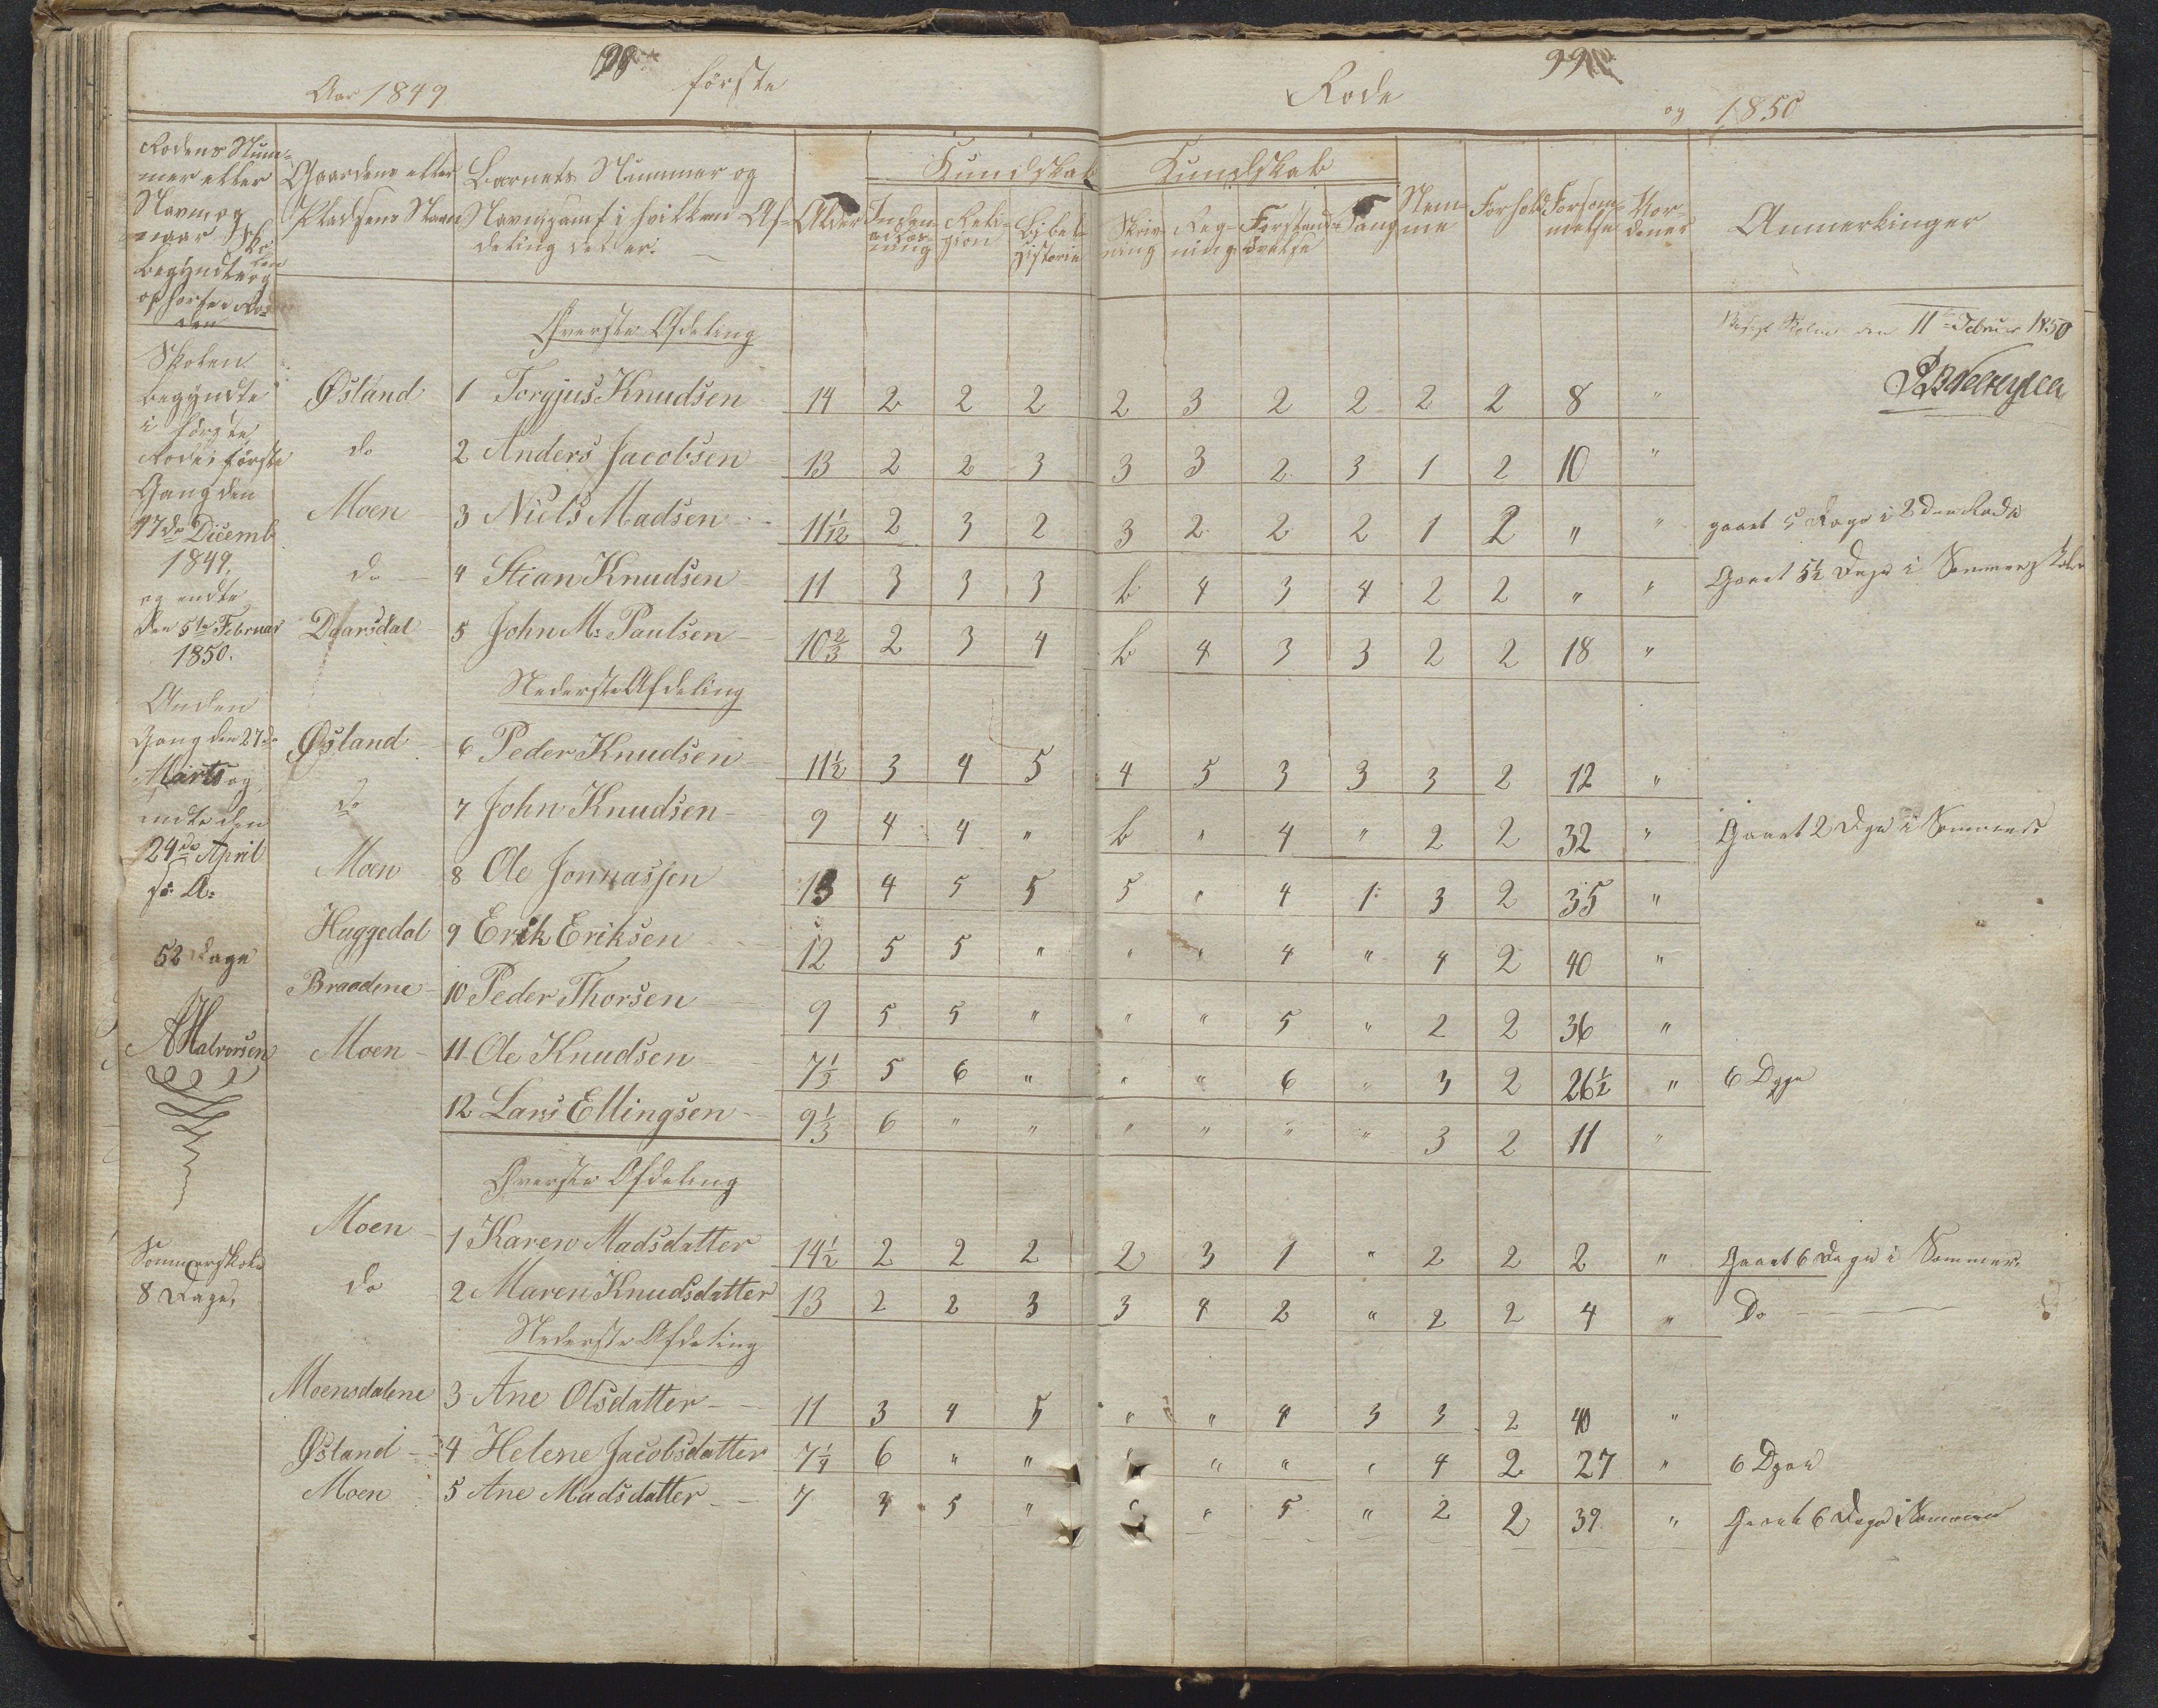 98
99
Aar 1849 förste
Rode og 1850
Rodens Num-
mer eller
Navn og
naar Sko-
len
begyndte og
ophørte i Ro-
den
Gaardens eller
Pladsens Navn
Barnets Nummer og
Navn, samt i hvilken Af-
deling det er.
Alder
Kundskab
Inden-
adlæs-
ning
Reli-
gion
Bibel-
historie
Kundskab
Skriv-
ning
Reg-
ning
Forstands-
øvelse
Sang
Nem-
me
Forhold
Forsøm-
melse
Vor-
denes
Anmerkinger
Øverste Afdeling
Besøgt Skolen den 11te Februar 1850
Skolen
begyndte
i første
Rode første
Gang den
17de Dicemb
1849,
og endte
den 5te Februar
1850.
Anden
Gang den 27de
Marts og
endte den
24de April
s: A:
52 Dage
AHalvorsen
Sommerskole
8 Dage,
Østand 1 Torgjus Knudsen 14 2 2 2 2 3 2 2 2 2 8 "
do 2 Anders Jacobsen 13 2 2 3 3 3 2 3 1 2 10 "
Moen 3 Niels Madsen 11 1/12 2 3 2 3 2 2 2 1 2 " " gaaet 5 Dage i 2den Rode
do 4 Stian Knudsen 11 3 3 3 b 4 3 4 2 2 " " Gaaet 5½ Dage i Sommerskolen
Daarsdal 5 John M: Paulsen 10 2/3 2 3 4 b 4 3 3 2 2 18 "
Nederste Afdeling
Østand 6 Peder Knudsen 11½ 3 4 5 4 5 3 3 3 2 12 "
do 7 John Knudsen 9 4 4 " b " 4 " 2 2 32 " Gaaet 2 Dge i Sommersk
Moen 8 Ole Jonnassen 13 4 5 5 5 " 4 1 3 2 35 "
Huggedal 9 Erik Eriksen 12 5 5 " " " 4 " 4 2 40 "
Braadene 10 Peder Thorsen 9 5 5 " " " 5 " 2 2 36 "
Moen 11 Ole Knudsen 7 1/3 5 6 " " " 6 " 3 2 26½ " 6 Dage
12 Lars Ellingsen 9 1/3 6 " " " " " " 3 2 11 "
Øverste Afdeling
Moen 1 Karen Madsdatter 14½ 2 2 2 2 3 1 " 2 2 2 " Gaaet 6 Dage i Sommer.
do 2 Maren Knudsdatter 13 2 2 3 3 4 2 " 2 2 4 " Do
Nederste Afdeling
Moensdalene 3 Ane Olsdatter 11 3 4 5 " " 4 3 3 2 40 "
Østand 4 Helene Jacobsdatter 7¼ 6 " " " " " " 4 2 27 " 6 Dage
Moen 5 Ane Madsdatter 7 3 5 " " " 5 " 2 2 39 " Gaaet 6 Dage i Sommeren